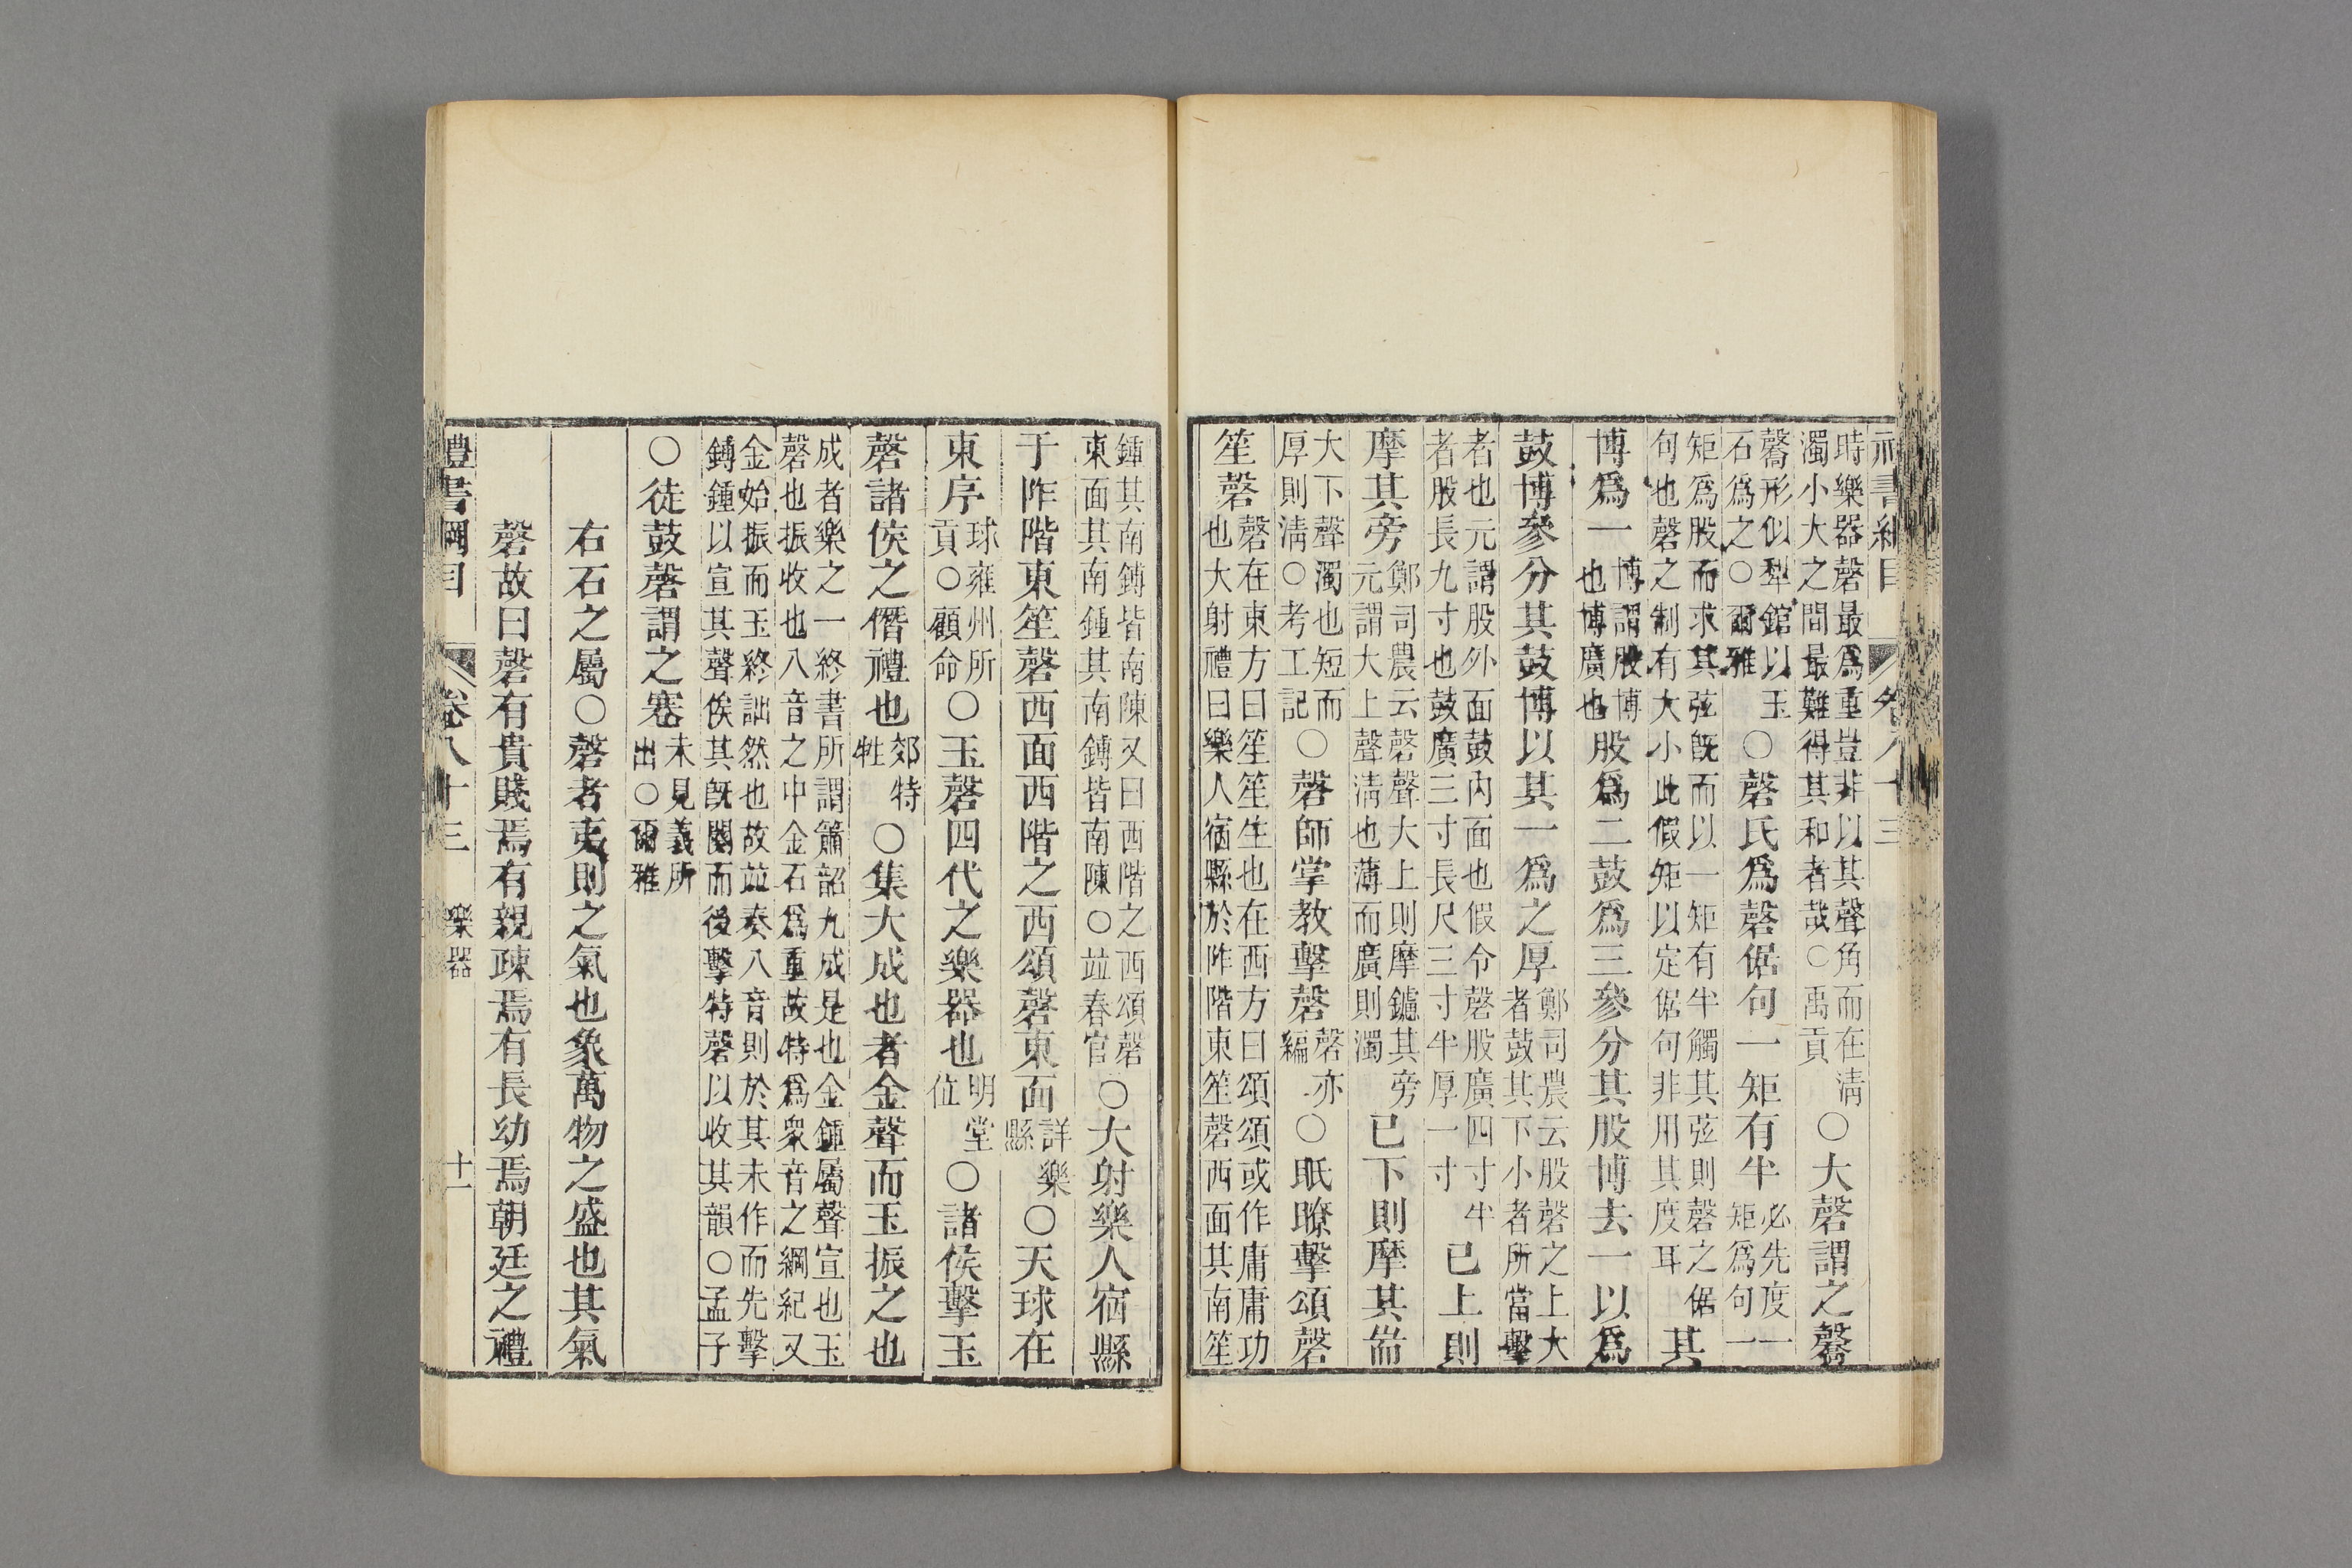 時樂器磬最爲重豈非以其聲角而在淸
濁小大之間最難得其和者哉○禹貢
○大磬謂之毊
毊形似犁錧以玉
石爲之○爾雅
○磬氏爲磬倨句一矩有半
必先度一
矩爲句一
矩爲股而求其弦旣而以一矩有半觸其弦則磬之倨
句也磬之制有大小此假矩以定倨句非用其度耳
其
博爲一
博謂股博
也博廣也
股爲二鼓爲三參分其股博去一以爲
鼓博參分其鼓博以其一爲之厚
鄭司農云股磬之上大
者鼓其下小者所當擊
者也元謂股外面鼓內面也假令磬股廣四寸半
者股長九寸也鼓廣三寸長尺三寸半厚一寸
已上則
摩其旁
鄭司農云磬聲大上則摩鑢其旁
元謂大上聲淸也薄而廣則濁
已下則摩其耑
大下聲濁也短而
厚則淸○考工記
○磬師掌教擊磬
磬亦
編
○眂瞭擊頌磬
笙磬
磬在東方曰笙笙生也在西方曰頌頌或作庸庸功
也大射禮曰樂人宿縣於阼階東笙磬西面其南笙
鍾其南鑮皆南陳又曰西階之西頌磬
東面其南鍾其南鑮皆南陳○竝春官
○大射樂人宿縣
于阼階東笙磬西面西階之西頌磬東面
詳樂
縣
○天球在
東序
球雍州所
貢○顧命
○玉磬四代之樂器也
明堂
位
○諸侯擊玉
磬諸侯之僭禮也
郊特
牲
○集大成也者金聲而玉振之也
成者樂之一終書所謂簫韶九成是也金鍾屬聲宣也玉
磬也振收也八音之中金石爲重故特爲衆音之綱紀又
金始振而玉終詘然也故竝奏八音則於其未作而先擊
鎛鍾以宣其聲俟其旣闋而後擊特磬以收其韻○孟子
○徒鼓磬謂之寋
未見義所
出○爾雅
右石之屬○磬者夷則之氣也象萬物之盛也其氣
磬故曰磬有貴賤焉有親疎焉有長幼焉朝廷之禮
禮書綱目
卷八十三
樂器
十一